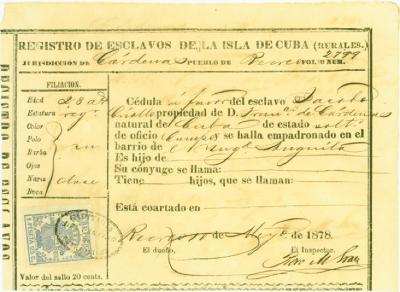 REGISTRO DE ESCLAVOS DE LA ISLA DE CUBA (RURALES.)
JURISDICCION DE Cárdenas PUEBLO DE FOLIO NUM. 2799
REGISTRO DE ESCLAVOS
FILIACION.
Edad 28 as
Estatura reg.
Color
Pelo
Barba
Ojos
Nariz
Boca
Cédula á favor del esclavo Jacobo
Criollo propiedad de D. Franco. de Cárdenas
natural de Cuba de estado solto.
de oficio Campo se halla empadronado en el
barrio de
Es hijo de
Su cónyuge se llama:
Tiene hijos, que se llaman:
Está coartado en
Recreo 10 de Mayo de 1878.
El dueño, El Inspector,
Valor del sello 20 cents.